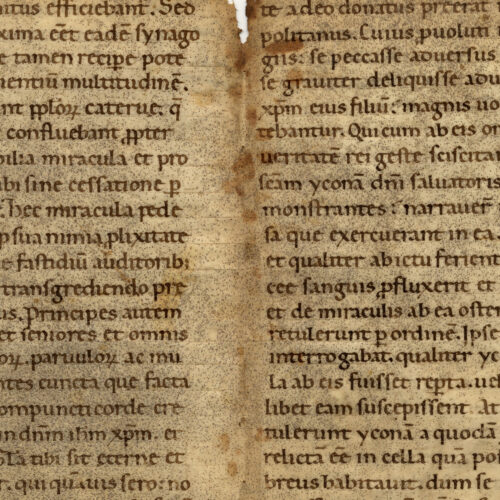 nitus efficiebant. Sed
xima eet eadē synago
e tamen recipe pote
nentiū multitudinē.
nt ꝓploꝝ caterue. q̄
confluebant ꝓpter
bilia miracula et pro
abi sine cessatione p
hec miracula pede
p sua nimia ꝓlixitate
e fastidiū auditorib;
transgrediendo pre
us. principes autem
et seniores et omnis
oꝝ. paruuloꝝ ac mu
ntes cuncta que facta
compuncti corde cre
in dnm ihm xpm. et
Gła tibi sit eterne et
r. qui quāuis sero: no
te adeo donatus preerat
politanus. Cuius puoluti
giis: se peccasse aduersus
se grauiter deliquisse adu
xpm eius filiū: magnis uo
tebantur. Qui cum ab eis o
ueritatē rei geste sciscita
scām yconā dni saluatoris
monstrantes: narrauer̄
sa que exercuerant in ea.
et qualiter ab ictu ferient
cee sanguis ꝓfluxerit et
et de miraculis ab ea osten
retulerunt p ordinē. Ipse
interrogabat. qualiter yc
la ab eis fuisset repta. uel
libet eam suscepissent. At
tulerunt yconā a quodā
relicta ēē in cella quā po
breus habitauit. dum se